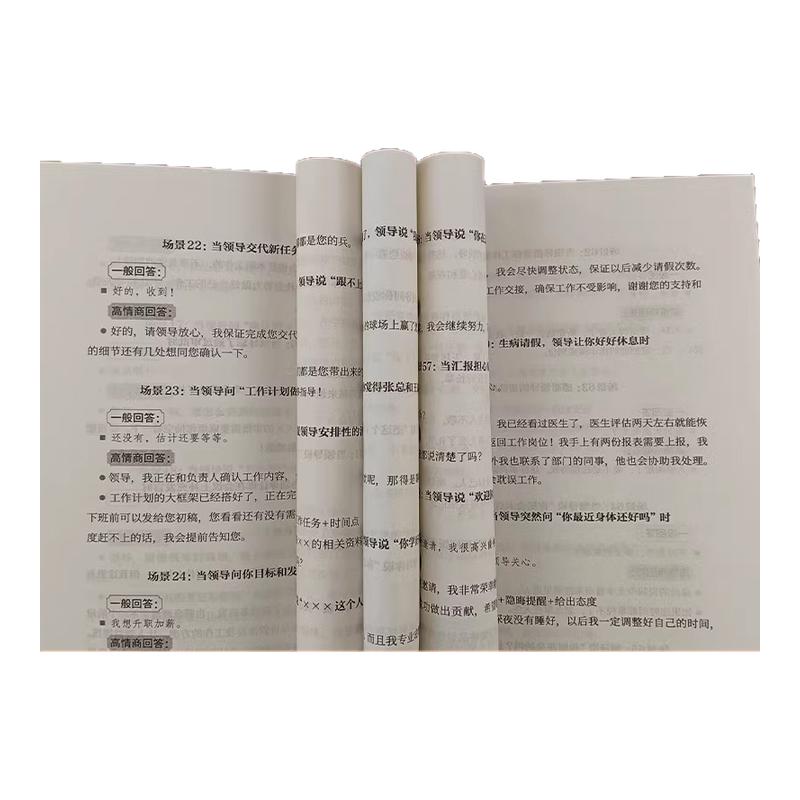 场景22：当领导交代新任务
一般回答：
■ 好的，收到！
高情商回答：
● 好的，请领导放心，我保证完成您交代
的细节还有几处想同您确认一下。
场景23：当领导问“工作计划做
一般回答：
■ 还没有，估计还要等等。
高情商回答：
● 领导，我正在和负责人确认工作内容，
● 工作计划的大框架已经搭好了，正在完
下班前可以发给您初稿，您看看还有没有需
度赶不上的话，我会提前告知您。
场景24：当领导问你目标和发
一般回答：
■ 我想升职加薪。
高情商回答：
都是您的兵。
领导说“跟不上
都是您带出来的
指导！
领导安排性的
作任务+时间点
×××的相关资料
“×××这个人
了，领导说“
的球场上赢了
觉得张总和王
呢，那得是
领导说“你学
而且我专业
：当领导说“你在
我会继续努力
57：当汇报担心
？
都说清楚了吗？
当领导说“欢迎
邀请，我很高兴
邀请，我非常荣幸
功做出贡献，希望
我会尽快调整状态，保证以后减少请假次数。
工作交接，确保工作不受影响，谢谢您的支持和
：生病请假，领导让你好好休息时
心。
我已经看过医生了，医生评估两天左右就能恢
返回工作岗位！我手上有两份报表需要上报，我
外我也联系了部门的同事，他也会协助我处理。
会耽误工作。
当领导突然问“你最近身体还好吗”时
领导关心。
+隐晦提醒+给出态度
深夜没有睡好，以后我一定调整好自己的时间，